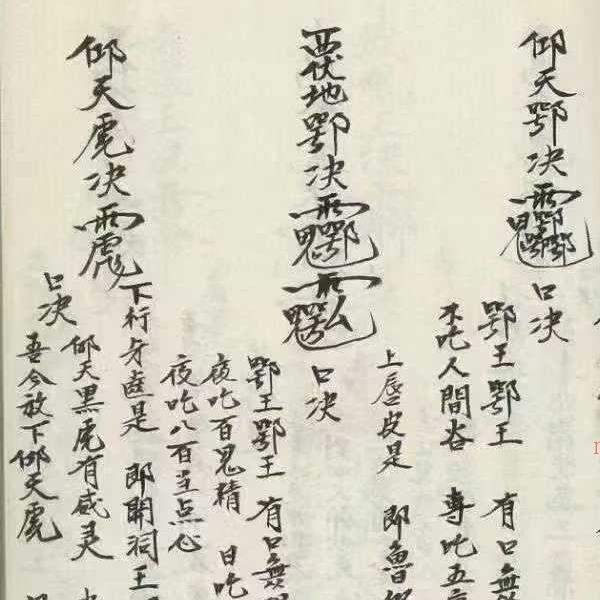 仰天鄂决
口决
鄂王鄂王 有口無
不吃人間谷 專吃五
上唇皮是 即魯
伏地鄂决
口决
鄂王鄂王 有口無
夜吃百鬼精 日吃
夜吃八百当点心
下行牙齿是 即開洞王
仰天虎决
口决
仰天黑虎有感灵
吾今放下仰天虎